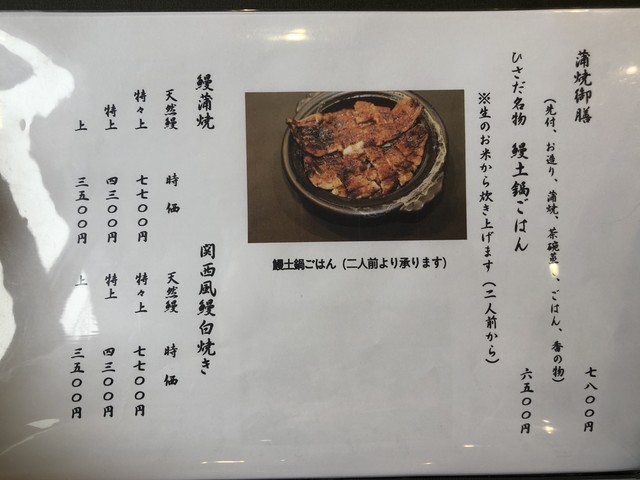 蒲焼御膳 七八〇〇円
(先付、お造り、蒲焼、茶碗蒸し、ごはん、香の物)
ひさだ名物 鰻土鍋ごはん 六五〇〇円
※生のお米から炊き上げます(二人前から)
鰻土鍋ごはん(二人前より承ります)
鰻蒲焼
天然鰻 時価
特々上 七七〇〇円
特上 四三〇〇円
上 三五〇〇円
関西風鰻白焼き
天然鰻 時価
特々上 七七〇〇円
特上 四三〇〇円
上 三五〇〇円